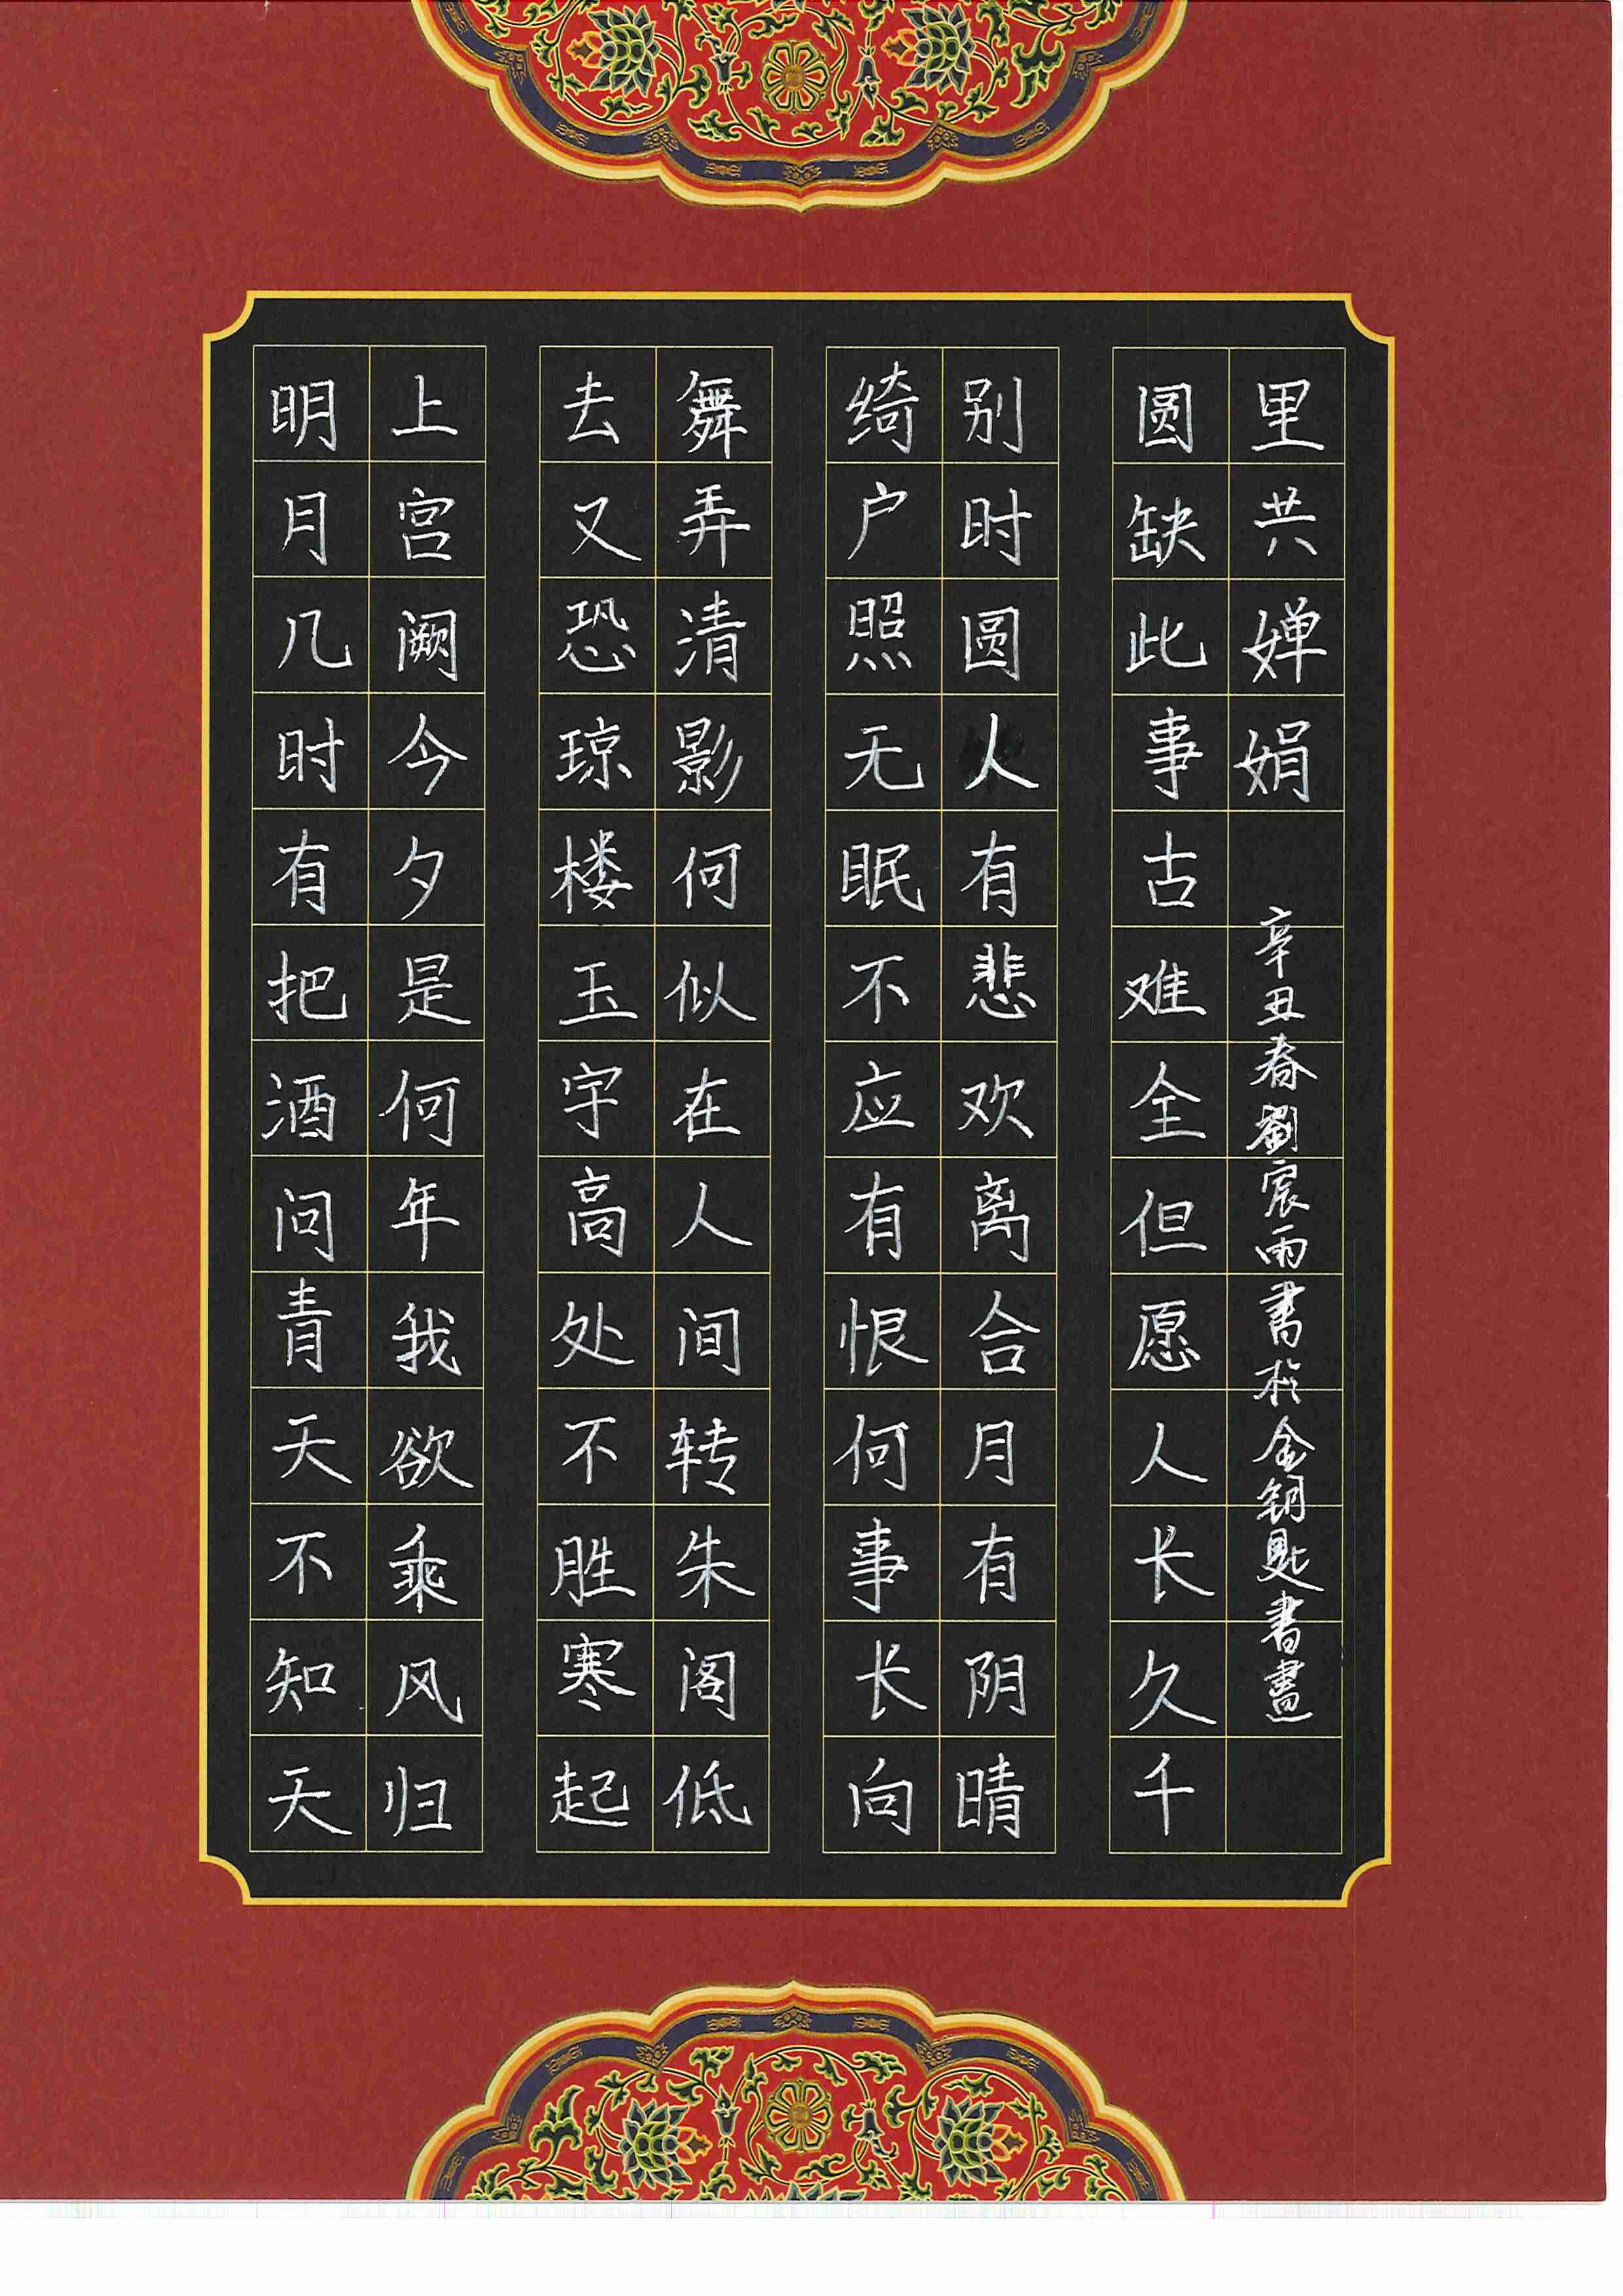 明月几时有把酒问青天不知天
上宫阙今夕是何年我欲乘风归
去又恐琼楼玉宇高处不胜寒起
舞弄清影何似在人间转朱阁低
绮户照无眠不应有恨何事长向
别时圆人有悲欢离合月有阴晴
圆缺此事古难全但愿人长久千
里共婵娟
辛丑春劉宸雨書於金钥匙書畫